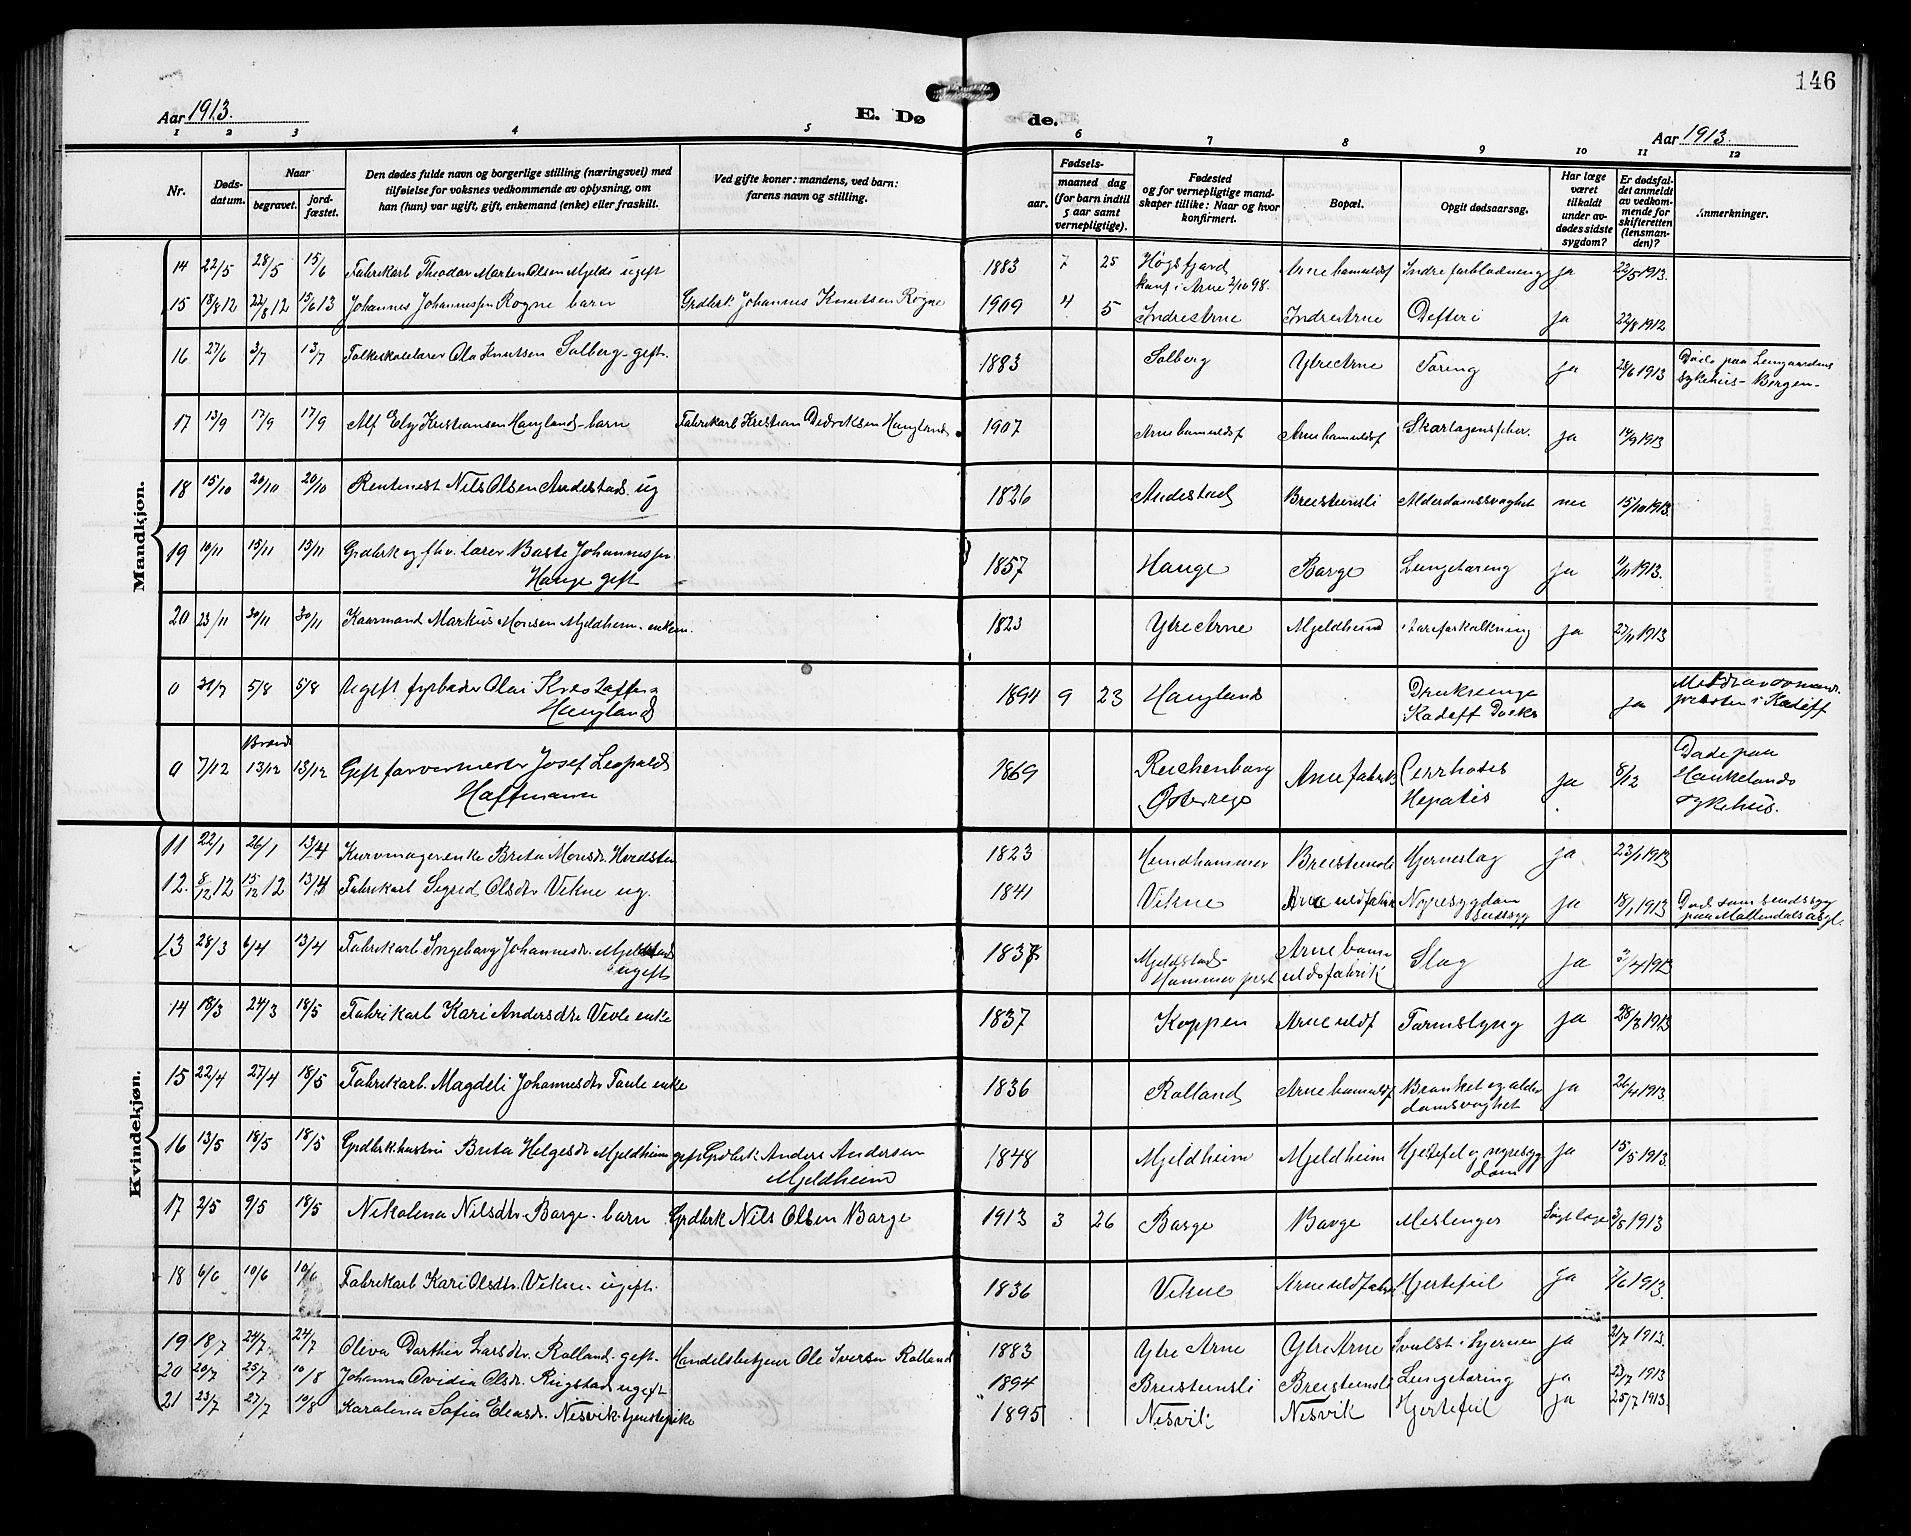 146
Aar 1913.
E. Døde.
Aar 1913.
1 2 3 4 5 6 7 8 9 10 11 12
Nr.
Døds-
datum.
Naar
begravet.
jord-
fæstet.
Den dødes fulde navn og borgerlige stilling (næringsvei) med
tilføielse for voksnes vedkommende av oplysning, om
han (hun) var ugift, gift, enkemand (enke) eller fraskilt.
Ved gifte koner: mandens, ved barn:
farens navn og stilling.
Fødsels-
aar.
maaned dag
(for barn indtil
5 aar samt
vernepligtige).
Fødested
og for vernepligtige mand-
skaper tillike: Naar og hvor
konfirmert.
Bopæl.
Opgit dødsaarsag.
Har læge
været
tilkaldt
under av-
dødes sidste
sygdom?
Er dødsfal-
det anmeldt
av vedkom-
mende for
skifteretten
(lensman-
den)?
Anmerkninger.
Mandkjøn.
14 22/5 28/5 15/6 Fabrikarb Theodor Marten Olsen Mjelde ugift 1883 7 25 Høgsfjord Arne Indreforblødning ja 22/5 1913.
konf i Arne 2/10 98.
15 18/8 12 22/8 12 15/6 13 Johannes Johannessen Rogne barn Grdbrk. Johannes Knutsen Rogne 1909 4 5 Indre Arne Indre Arne Difteri ja 22/8 1912
16 27/6 3/7 13/7 Folkeskolelærer Ola Knutsen Solberg gift. 1883 Solberg Ytre Arne Tæring ja 28/6 1913 Døde paa Lungaardens
sykehus - Bergen -
17 13/9 17/9 17/9 Alf Kristiansen Haugland - barn Fabrikarb Kristian Didriksen Haugland 1907 Skarlagensfeber. ja 14/9 1913
18 15/10 20/10 20/10 Rentenist Nils Olsen Andestad ug 1826 Andestad Breistensli Alderdomssvaghet nei 15/10 1913.
19 10/11 15/11 15/11 Grdbrk og fhv. lærer Baste Johannessen
Hauge gift 1857 Hauge Borge Lungetæring ja 11/11 1913.
20 23/11 30/11 30/11 Kaarmand Markus Monsen Mjeldheim - enkem. 1823 Ytre Arne Mjeldheim Aareforkalkning ja 27/11 1913
0 5/8 5/8 Ugift fyrbøter Olai Kristoffer
Haugland 1894 9 23 Haugland Kadiff Docks ja
0 7/12 13/12 13/12 Gift farvermester Josef Leopold
Hoffmann 1869 Reichenberg Arne fabrik Cirrhosis ja 8/12 Døde paa
Østerrige Hepatis Haukelands
sykehus.
Kvindekjøn.
11 22/1 26/1 13/4 Kurvmagerenke Brita Monsdr. 1823 Hundhammer Breistensli Hjerneslag ja 23/1 1913
12. 8/12 12 15/12 12 13/4 Fabrikarb Sigrid Olsdtr Vikne ug. 1841 Vikne Arne uldfabrik Nyresygdom ja 18/1 1913 Døde som sindssyg
sindssyg paa Møllendals asyl.
13 28/3 6/4 13/4 Fabrikarb Ingeborg Johannesdr. Mjeldstad
ugift 1837 Mjeldstad - Arne bom- Slag ja 2/4 1913
Hammer prest uldsfabrik
14 18/3 24/3 18/5 Fabrikarb Kari Andersdtr Vevle enke 1837 Koppen Arne uldf Tarmslyng ja 28/3 1913
15 22/4 27/4 18/5 Fabrikarb. Magdeli Johannesdtr Taule enke 1836 Rolland Arne bomuldf Bronkit og alder ja 26/4 1913
domsvaghet
16 13/5 18/5 18/5 Grdbrk. hustru Brita Helgesdr Mjeldheim gift Grdbrk Anders Andersen
Mjeldheim 1848 Mjeldheim Mjeldheim Hjertefeil og nyresyg ja 15/5 1913.
dom
17 2/5 9/5 18/5 Nikolina Nilsdtr. Borge - barn Grdbrk Nils Olsen Borge 1913 3 26 Borge Borge Meslinger 3/5 1913
18 6/6 10/6 10/6 Fabrikarb Kari Olsdtr. Vikne - ugift. 1836 Vikne Arne uldfabrik Hjertefeil Ja 7/6 1913.
19 18/7 24/7 24/7 Oliva Dorthea Larsdtr. Rolland - gift - Handelsbetjent Ole Iversen Rolland 1883 Ytre Arne Ytre Arne Svulst i hjernen ja 21/7 1913.
20 20/7 25/7 10/8 Johanna Ovidia Olsdr. Ringstad ugift 1894 Breistensli Breistensli Lungetæring ja 23/7 1913
21 23/7 27/7 10/8 Karolina Sofia Eliasdr. Nesvik - tjenestepike 1895 Nesvik Nesvik Hjertefeil ja 25/7 1913.